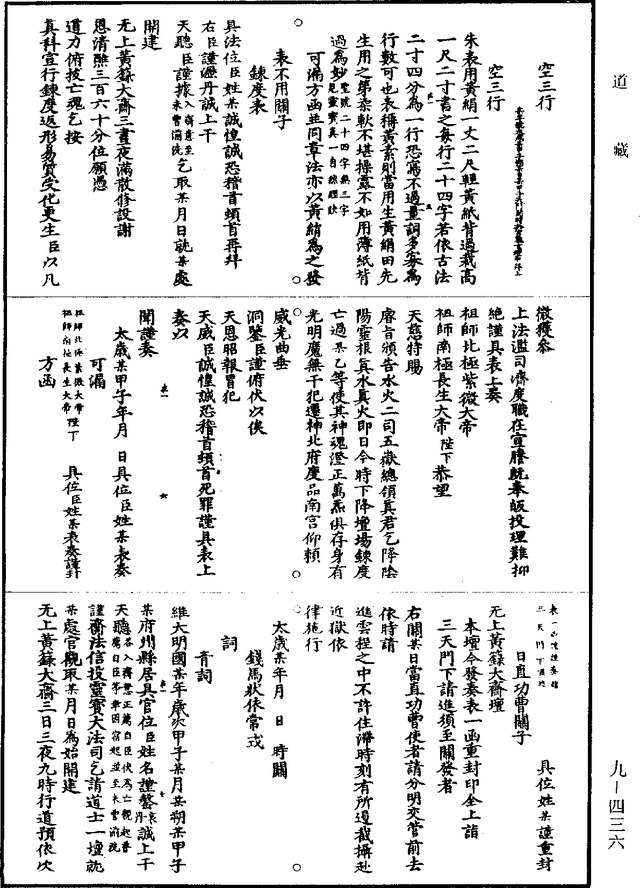 道藏
空三行
空三行
朱表用黃絹一丈二尺輕黃紙背過裁高
一尺二寸書之每行二十四字若依古法
二寸四分為一行恐寫不過量詞多寡為
行數可也表稱黃素則當用生黃絹田先
生用之第柔軟不堪操露不如用薄紙背
過為妙聖號二十四字無三字
可漏方函並同章法亦以黃絹為之發
表不用關子
鍊度表
具法位臣姓某誠惶誠恐稽首頓首再拜
右臣謹瀝丹誠上干
天聽臣謹據入齋意至乞取某月日詵某處
開建
无上黃籙大齋三晝夜滿散修設謝
恩清醮三百六十分位願憑
道力俯拔亡魂乞按
真科宣行鍊度返形易質受化更生臣以凡
微獲叅
上法濫司濟度職在宣騰既奉皈投理難抑
絕謹具表上奏
祖師北極紫微大帝
祖師南極長生大帝陛下恭望
天慈特賜
睿旨頒告水火二司五嶽總領真君乞降陰
陽靈根真水真火即日今時下降壇場鍊度
亡過某乙等使其神魂澄正萬炁俱存身有
光明魔無干犯遷神北府度品南宮仰賴
威光曲垂
洞鑒臣謹俯伏以俟
天恩昭報冒犯
天威臣誠惶誠恐稽首頓首死罪謹具表上
奏以
聞謹奏
太歲某甲子年月日具位臣姓某表奏
可漏
祖師北極紫微大帝
祖師南極長生大帝陛下
具位臣姓某表奏謹封
方函
三天門下
具位姓某謹重封
日直功曹關子
无上黃籙大齋壇
本壇今發奏表一函重封印全上詣
三天門下請進須至關發者
右關某日當直功曹使者請分明交管前去
依時請
進雲程之中不許住滯時刻有所過截攝赴
近獄依
律施行
太歲某年月日時關
錢馬狀依常式
詞
青詞
維大明國某年歲次甲子某月某朔某甲子
某府州縣居具官位臣姓名謹罄丹哀誠上干
天聽
謹齋法信投靈寶大法司乞請道士一壇就
某處官觀取某月日為始開建
无上黃籙大齋三日三夜九時行道預依次
九－四三六